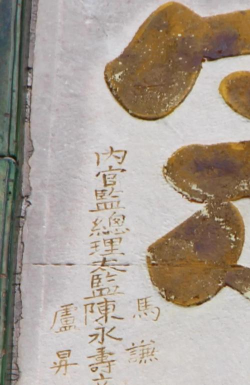 內官監總理太監陳永壽
馬謙
盧昇